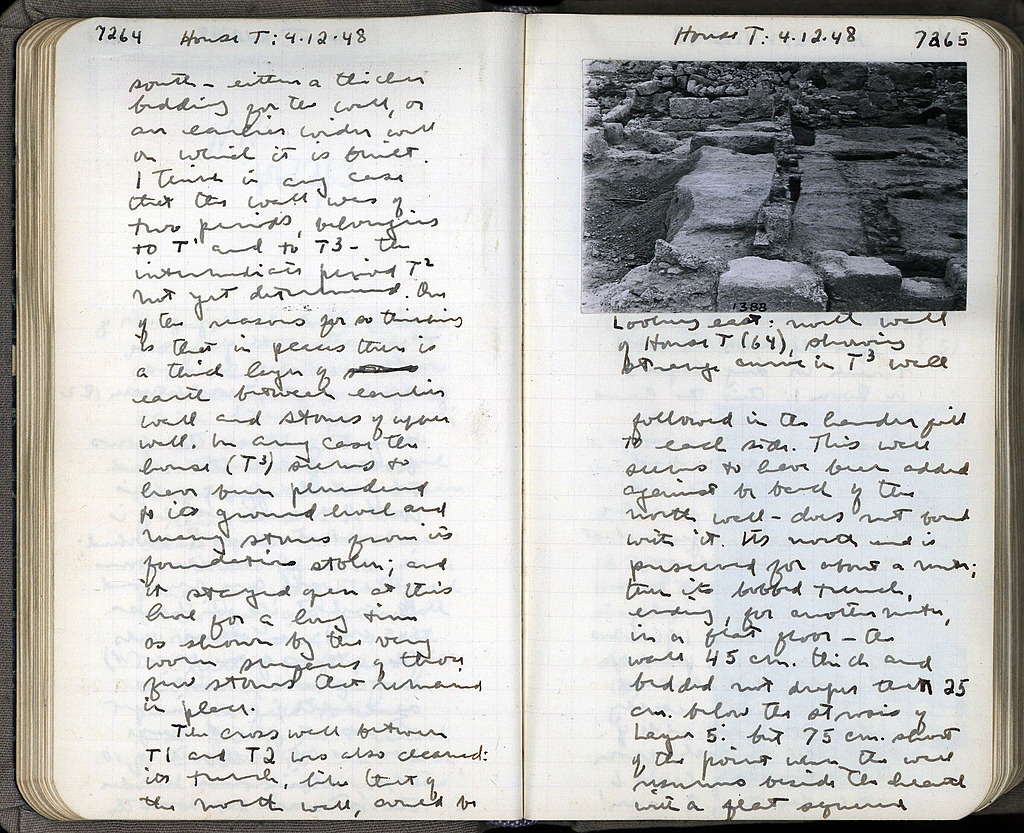 7264 House T: 4.12.48
south - either a thicker
bedding for the wall, or
an earlier wider wall
on which it is built.
I think in any case
that the wall was of
two periods, belonging
to T1 and to T3 - the
intermediate period T2
not yet determined. One
of the reasons for so thinking
is that in places there is
a third layer of
earth between earlier
wall and stones of upper
wall. In any case the
house (T3) seems to
have been plundered
to its ground level and
many stones from its
foundation stolen; and
it stayed open at this
level for a long time
as shown by the very
worn surfaces of those
few stones that remained
in place.
The cross wall between
T1 and T2 was also cleared:
its trench, like that of
the north wall, could be
House T: 4.12.48 7265
1388
Looking east: north wall
of House T (64), showing
strange curve in T3 wall
followed in the harder fill
to each side. This wall
seems to have been added
against the back of the
north wall - does not bond
with it. Its north end is
preserved for about a meter;
then its robbed trench,
ending, for another meter,
in a flat floor - the
wall 45 cm. thick and
bedded not deeper than 25
cm. below the strosis of
Layer 5. but 75 cm. short
of the point where the wall
resumes beside the hearth
with a flat squared